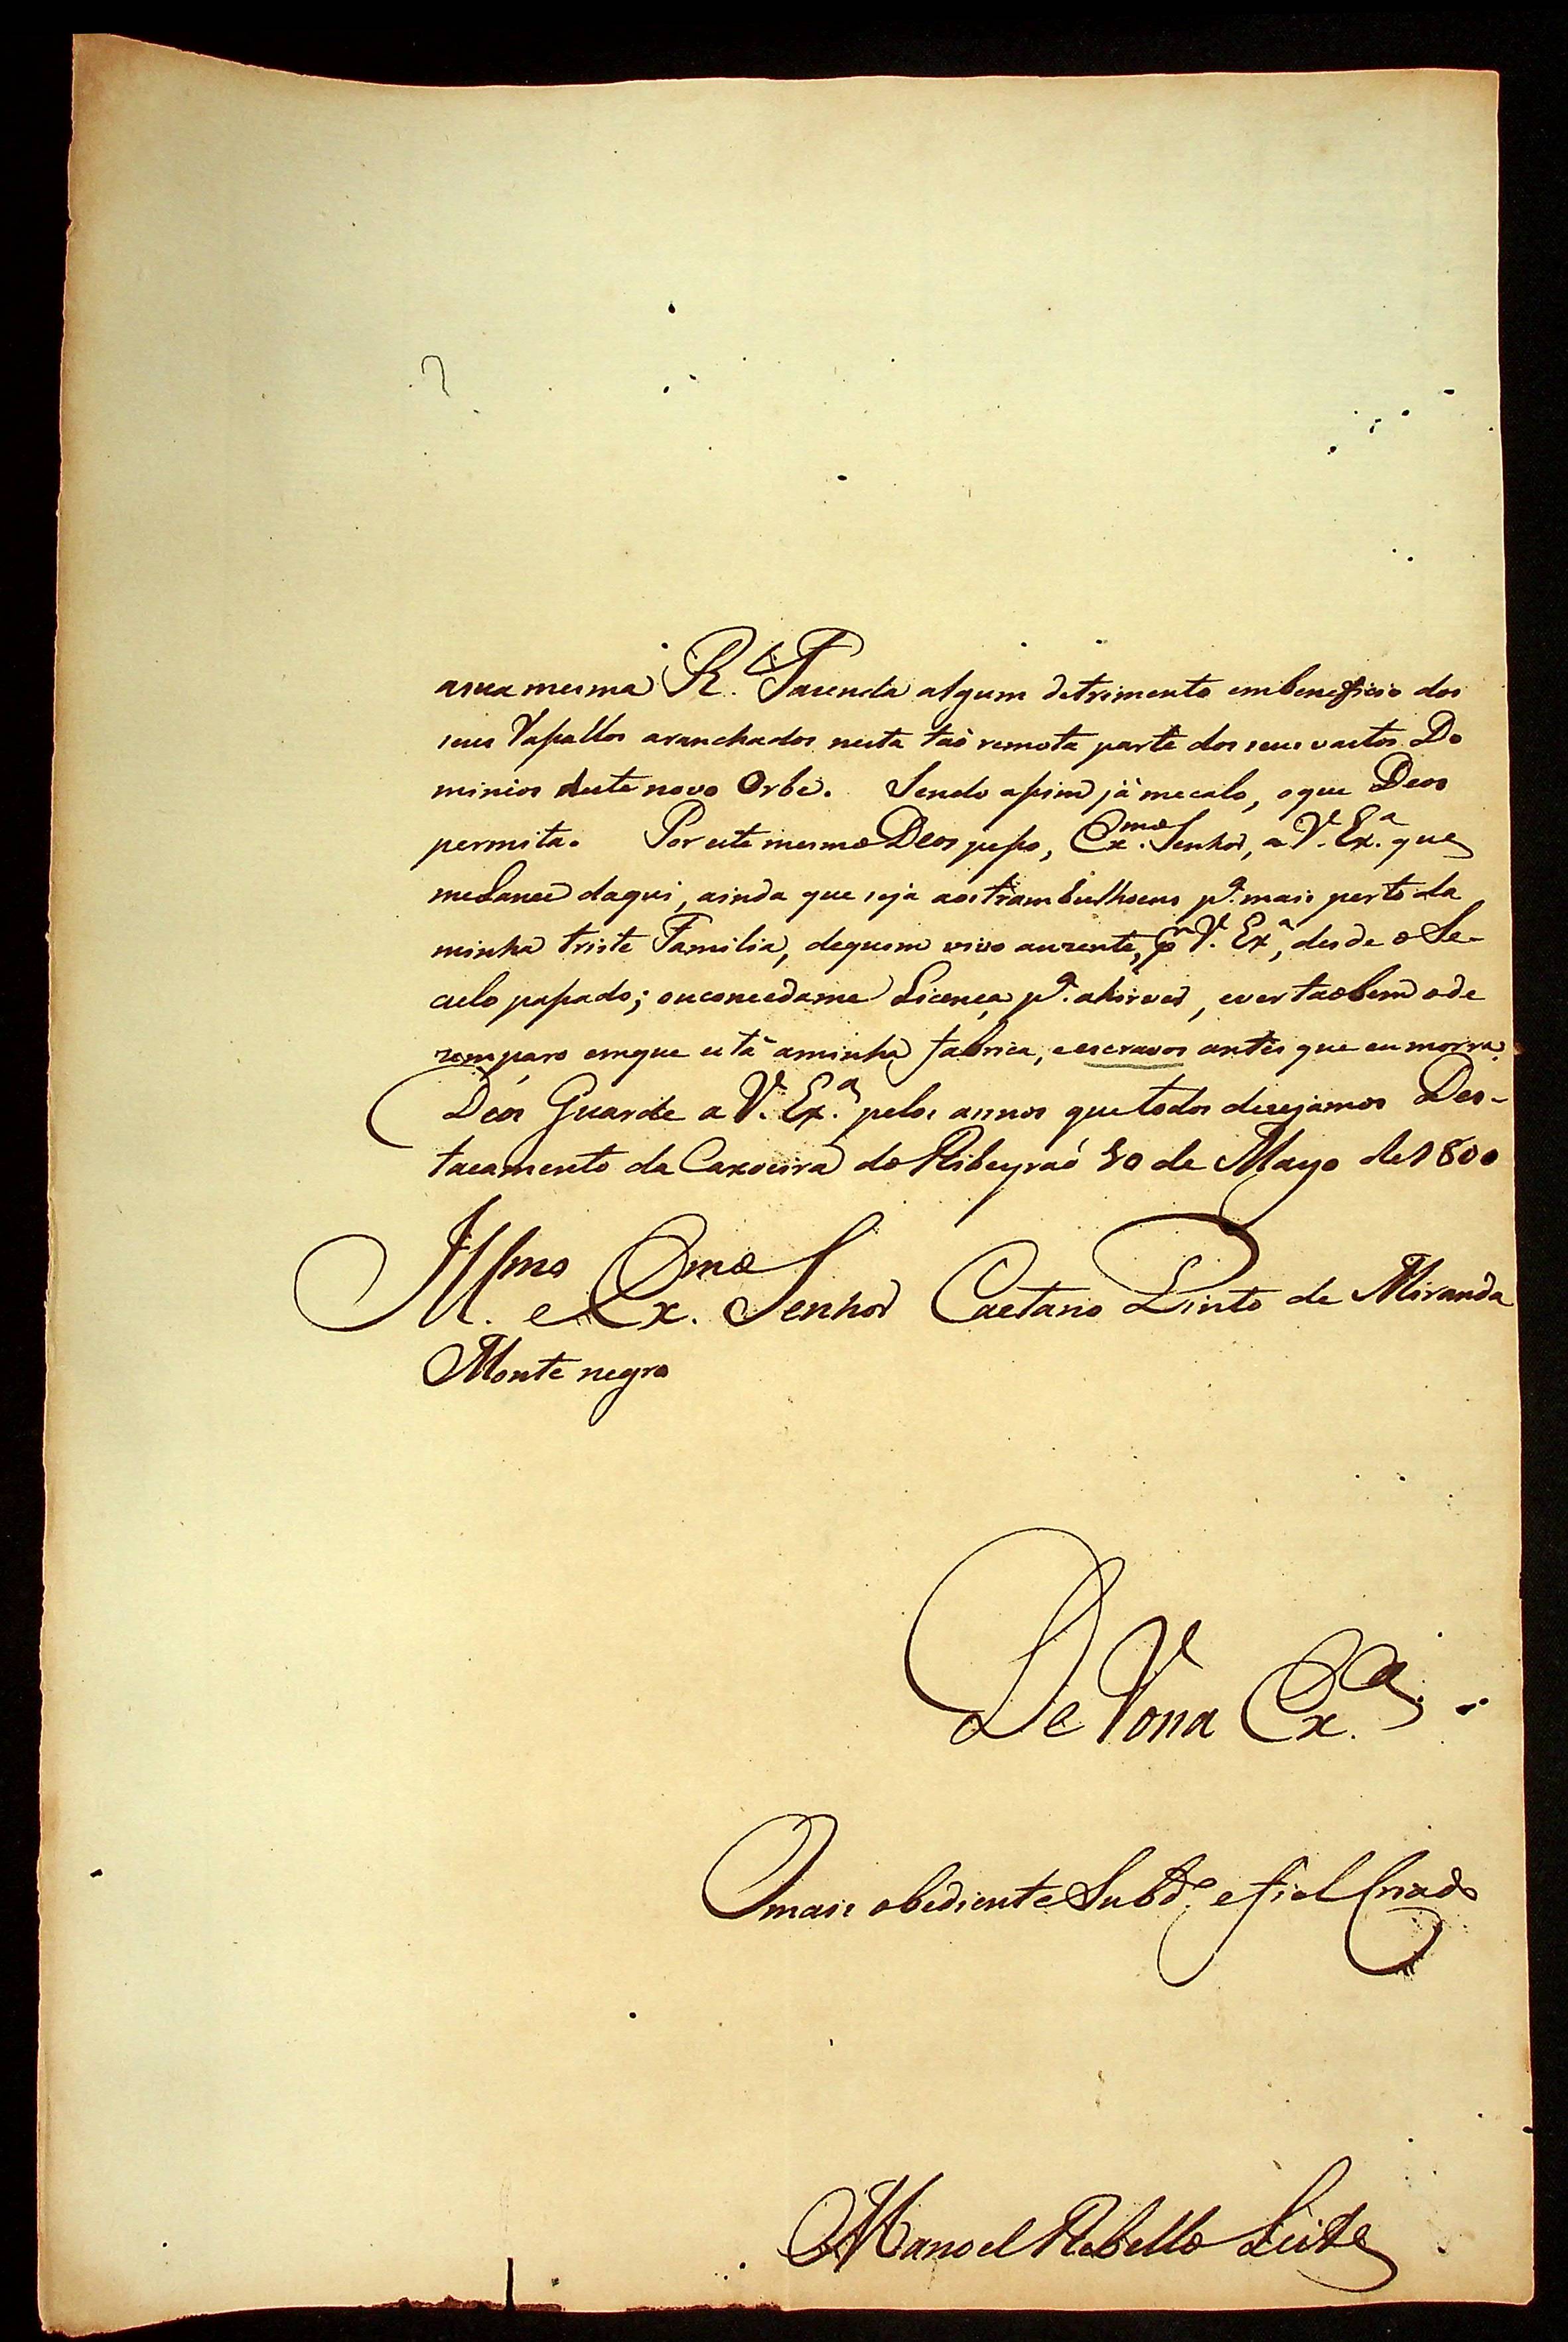 asua mesma R.^l Fazenda algum detrimento embeneficio dos
seus Vassallos aranchados nesta taõ remota parte dos seus vastos Do
minios deste novo Orbe. Sendo assim já mecalo, oque Deos
permita. Por este mesmo Deos pesso, Ex.^mo Senhor, a V. Ex.^a que
meLance daqui, ainda que seja aos trambulhoens p.^a mais perto da
minha triste Familia, dequem vivo auzente, p.^r V. Ex.^a, desde o Se-
culo passado; ouconcedame Licença p.^a ahir ver, ever taobem ode
zemparo emque está aminha fabrica, eescravos antes que eu morra.
Deos Guarde a V. Ex.^a pelos annos que todos desejamos Des-
tacamento da Caxoeira do Ribeyraõ 30 de Mayo de 1800
Ill.^mo e Ex.^mo Senhor Caetano Pinto de Miranda
Monte negro
De Vossa Ex.^a
Omais obediente Subd.^o e fiel Criado
Manoel Rebello Leite